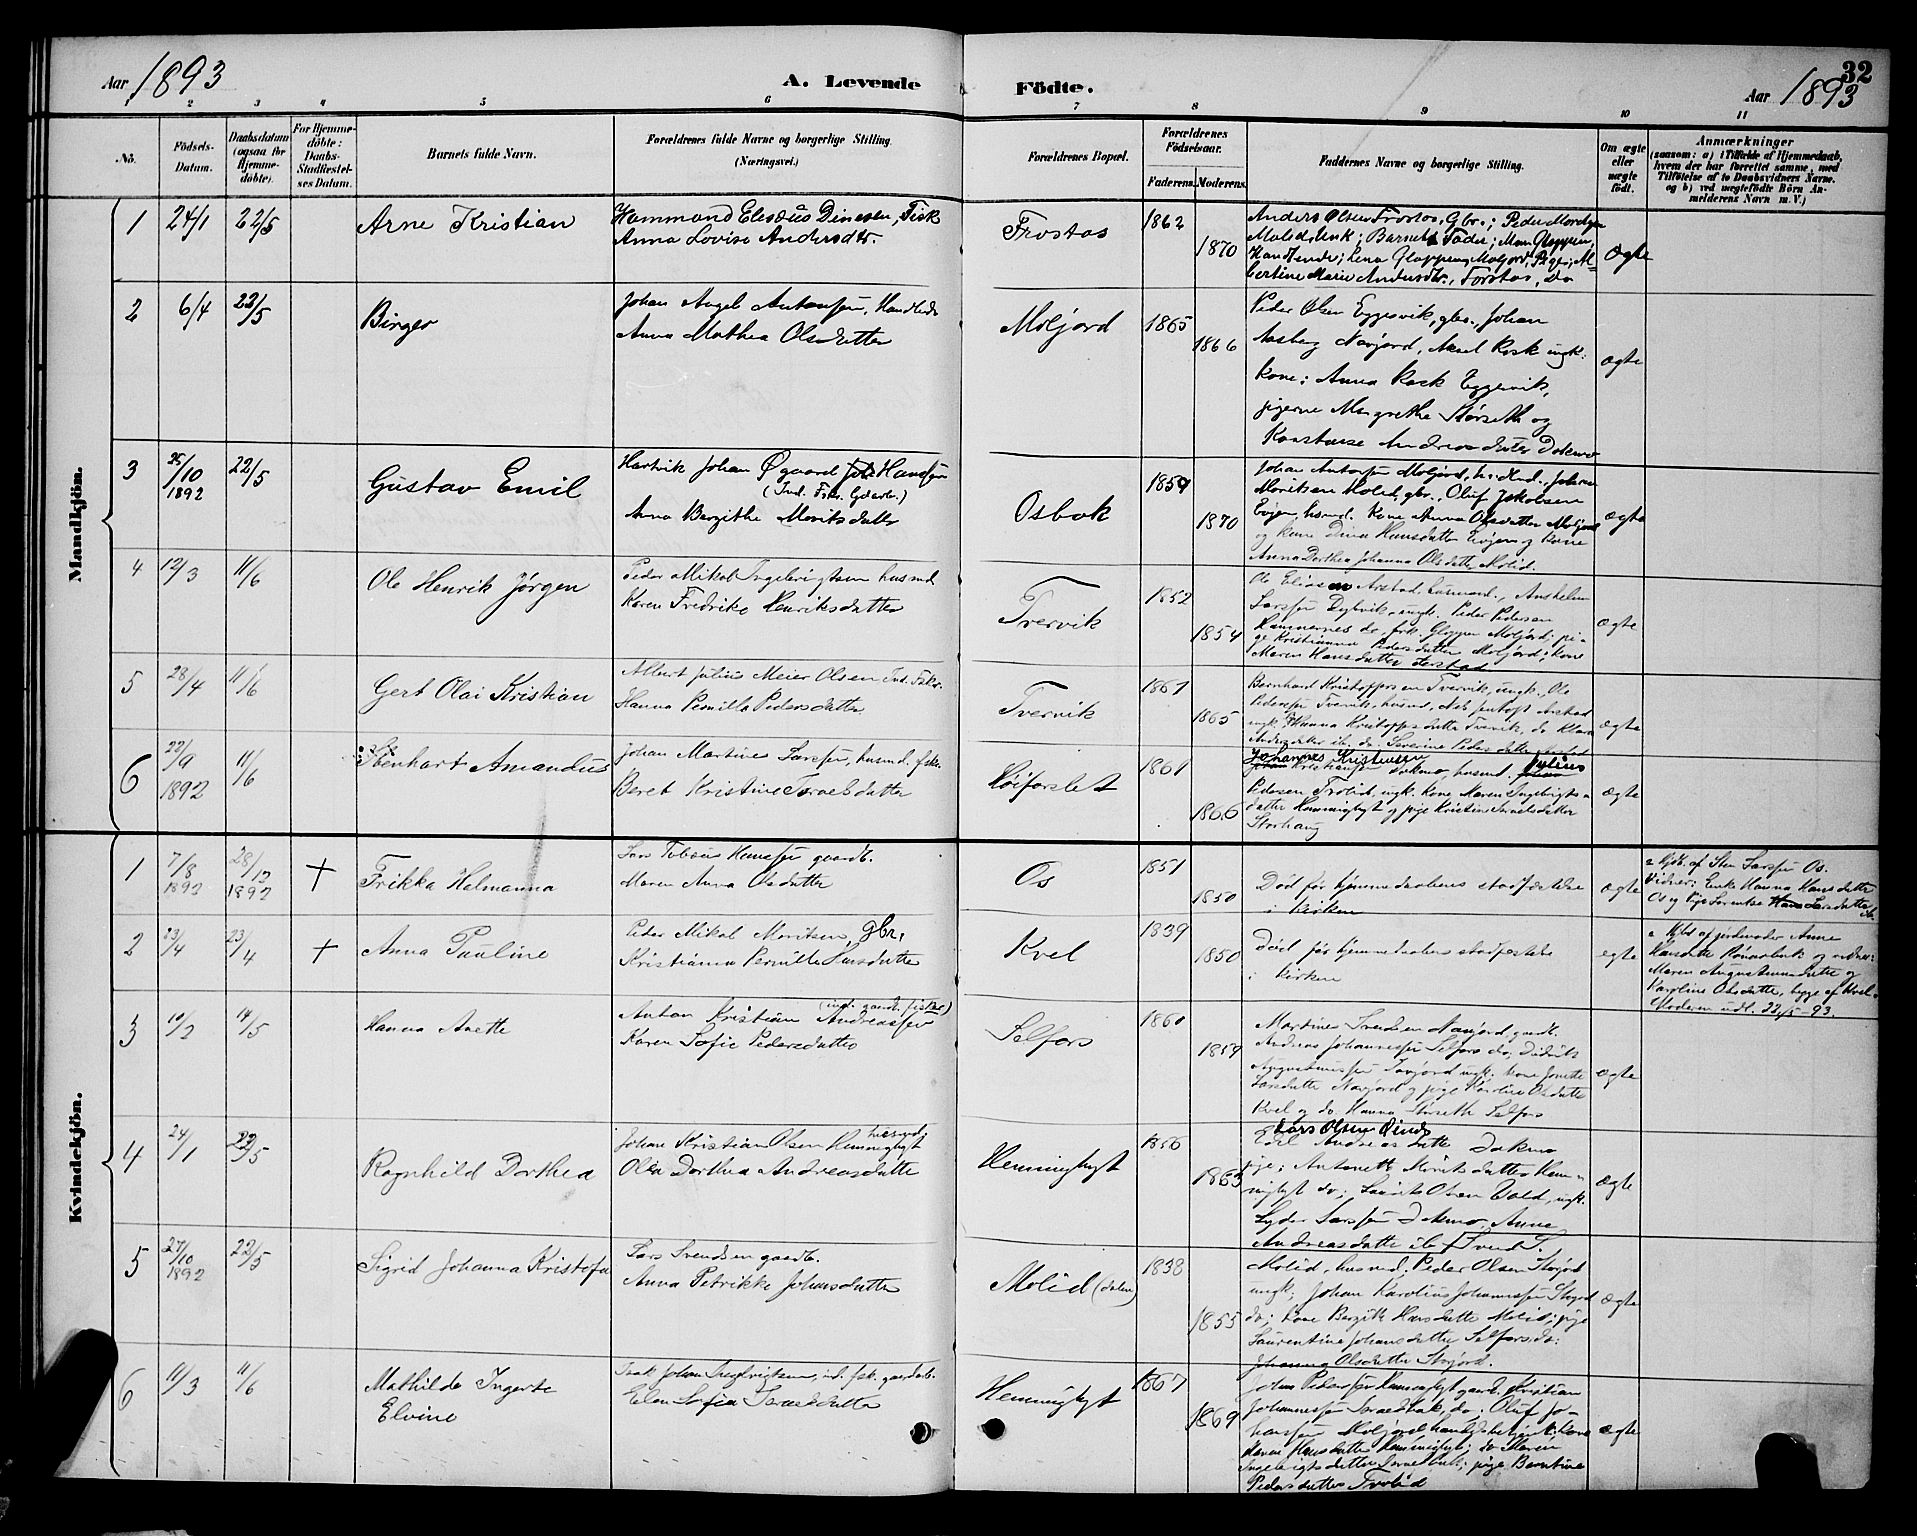 Aar 1893
A. Levende
Födte.
32
Aar 1893
1 2 3 4 5 6 7 8 9 10 11
No.
Födsels-
Datum.
Daabsdatum
(ogsaa for
Hjemme-
döbte).
For Hjemme-
döbte:
Daabs-
Stadfæstel-
ses Datum.
Barnets fulde Navn.
Forældrenes fulde Navne og borgerlige Stilling.
(Næringsvei.)
Forældrenes Bopæl.
Forældrenes
Födselsaar.
Faderens. Moderens.
Faddernes Navne og borgerlige Stilling.
Om ægte
eller
uægte
födt.
Anmærkninger
(saasom: a) i Tilfælde af Hjemmedaab,
hvem der har forrettet samme, med
Tilföielse af to Daabsvidners Navne.
og b) ved uægtefödte Börn An-
melderens Navn m. V.)
Mandkjön.
1 24/1 22/5 Arne Kristian
Hammond Elisæus Dinesen, Fisk
Anna Lovise Andersdtr.
Frostos 1862 1870
Anders Olsen Frostos, Gbr.; Peder
Barnets Fader;
Lena Gloppen, Moljord, Pige;
Marie Andersdtr., Forstos, Do
Ægte
2 6/4 22/5 Birger
Johan Angel Antonsen, Handlende
Anna Mathea Olsdatter
Moljord 1865 1866
Peder Olsen Eggesvik, gbr. Johan
Aasberg Navjord, Aksel Kosk ungk.
kone: Anna Kosk Eggesvik,
pigerne Margrethe Storseth og
Andreasdatter Dokmo
ægte
3 25/10 1892 22/5 Gustav Emil
Hartvik Johan Øgaard Hansen
(Ind. Fsk. Gderb.)
Anna Bergithe Moritsdatter
Osbak 1859 1870
Johan Antonsen Moljord, Johan
Moritsen Molid, gbr., Oluf Jakobsen
Evjen, husmd. Kone Anna Olsdatter Moljord
og kone Dina Hansdatter Evjen og kone
Anna Dorthea Johanna Olsdatter, Molid.
ægte
4 12/3 11/6 Ole Henrik Jørgen
Peder Mikal Ingebrigtsen husmd
Karen Fredrikke Henriksdatter
Tvervik 1852 1854
Ole Eliasen Arstad, husmand, Anshelm
Larssen Dybvik, ungk. Peder Pedersen
Hammernes do, frk. Gloppen Moljord; pi-
ge Kristianna Pedersdatter Moljord; kone
Maren Hansdatter Arstad
ægte
5 28/4 11/6 Gert Olai Kristian
Albert Julius Meier Olsen Ind. Fsker.
Hanna Pernilla Pedersdatter
Tvervik 1867 1865
Bernhard Kristoffersen Tvervik, ungk. Ole
Pedersen Tvervik, husmd, Arstad
ungk. Hanna Kristoffersdatter Tvervik, do
Andersdatter ib. do Severine Pedersdatter Arstad
ægte
6 22/9 1892 11/6 Ebenhart Amandus
Johan Martines Larssen, husmd. fsk.
Beret Kristine Israelsdatter
Høiforslet 1861 1866
Johannes Kristensen
Dokmo, husmd. Julius
Pedersen Trolid, ungk. kone Maren Ingebrigts-
datter Hemmingbygt og pige Kristine Israelsdatter
Storhaug
ægte
Kvindekjön.
1 7/8 1892 28/12 1892 + Frikka Helmanna
Lars Tobias Hanssen gaardb.
Maren Anna Olsdatter
Os 1851 1850
Død før hjemmedaabens stadfæstelse
i kirken
ægte
Hjdb. af Sten Larssen Os.
Vidner: Enke Hanna Hansdatter
Os og Pige Larsdatter
2 23/4 23/4 + Anna Pauline
Peder Mikal Moritsen, gbr.
Kristianna Pernille Larsdatter
Kvel 1839 1850
Død før hjemmedaabens stadfæstelse
i kirken
egte
Hjbd af jordemoder Anne
Hansdatter og vidner:
Maren Augustinusdatter og
Karoline Olsdatter, begge af Kvel.
Moderen udl. 22/5-93.
3 10/2 14/5 Hanna Anette
(ind. gaardb. fisker)
Anton Kristian Andreassen
Karen Sofie Pedersdatter
Selfors 1860 1859
Martines Svendsen Navjord, gaardb.
Andreas Johannessen Selfors do, Didrik
Augustinussen Navjord ungk. kone Jonette
Larsdatter Navjord og pige Karoline Olsdatter
Kvel og do Hanna Storseth Selfors
ægte
4 24/1 22/5 Ragnhild Dorthea
husmd
Johan Kristian Olsen Hemmingbygt
Olea Dorthea Andreasdatter
Hemmingbygt 1856 1863
Lars Olsen
Andreasdatter Dokmo
pige; Antonette Moritsdatter Hem-
mingbygt do; Laurits Olsen Vold, ungk.
Lyder Larssen Dokmo, Anne
Andreasdatter ib. Svend S.
ægte
5 27/10 1892 22/5 Sigrid Johanna Kristofa
Lars Svendsen gaardb.
Anna Petrikke Johansdatter
Molid (dalen) 1838 1855
Molid, husmd. Peder Olsen Storjord
ungk; Johan Karolius Johannessen Storjord
do; kone Bergitte Hansdatter Molid; pige
Laurentine Johansdatter Selfors do:
Johanna Olsdatter Storjord.
ægte
6 11/3 11/6 Mathilde Ingerte
Elvine
Isak Johan Ingebrigtsen, ind. fsk. gaardb.
Elen Sofia Israelsdatter
Hemmingbygt 1867 1869
Johan Pedersen Hemmingbygt gaardb, Kristian
Johannessen Israelsbak, do. Oluf Jo-
hansen Moljord handelsbetjent. Kone
Hansdatter Hemmingbygt; do Maren
Ingebrigtsdatter; pige Berntine
Pedersdatter Trolid
ægte